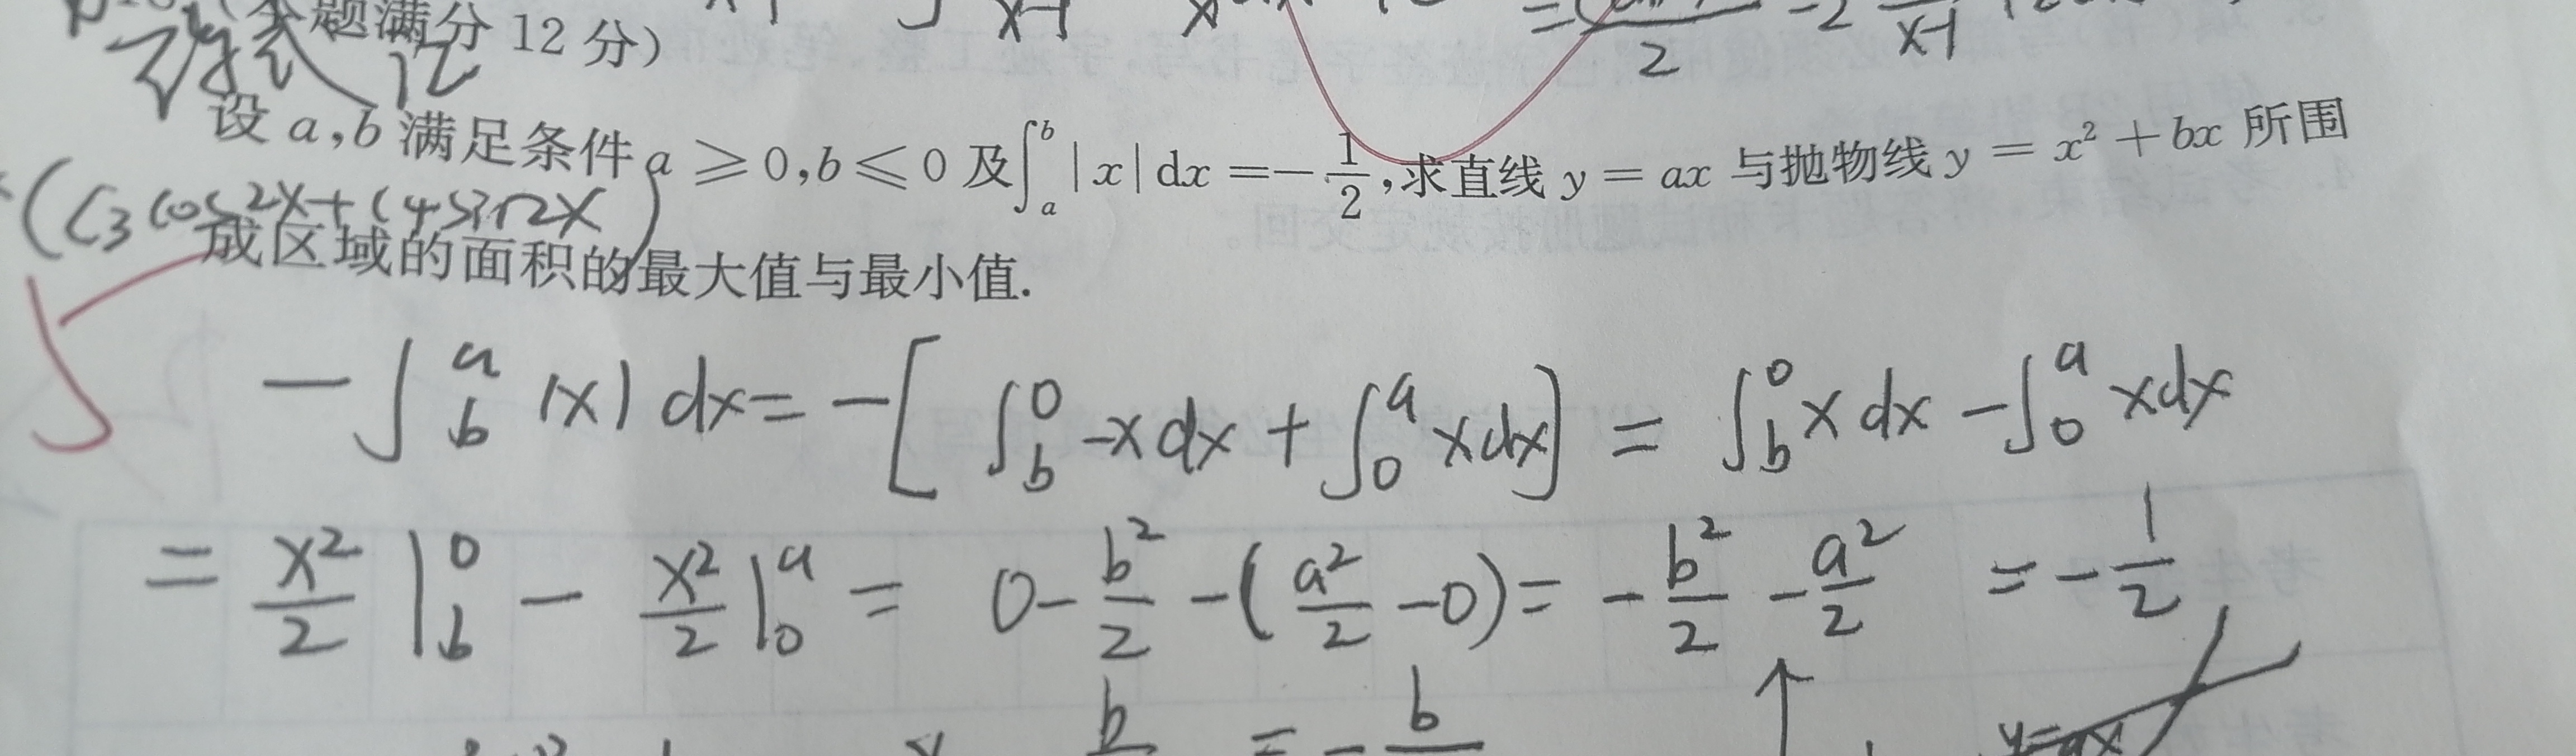 题满分 12 分)
设 a,b 满足条件 a ≥ 0,b ≤ 0 及∫_a^b |x| dx =-1/2,求直线 y = ax 与抛物线 y = x² + bx 所围
(C₃ cos2x + C₄ sin2x)
成区域的面积的最大值与最小值.
-∫_b^a |x| dx = -[∫_b^0 -x dx + ∫_0^a x dx] = ∫_b^0 x dx - ∫_0^a x dx
= x²/2 |_b^0 - x²/2 |_0^a = 0 - b²/2 - (a²/2 - 0) = - b²/2 - a²/2 = - 1/2
y=ax